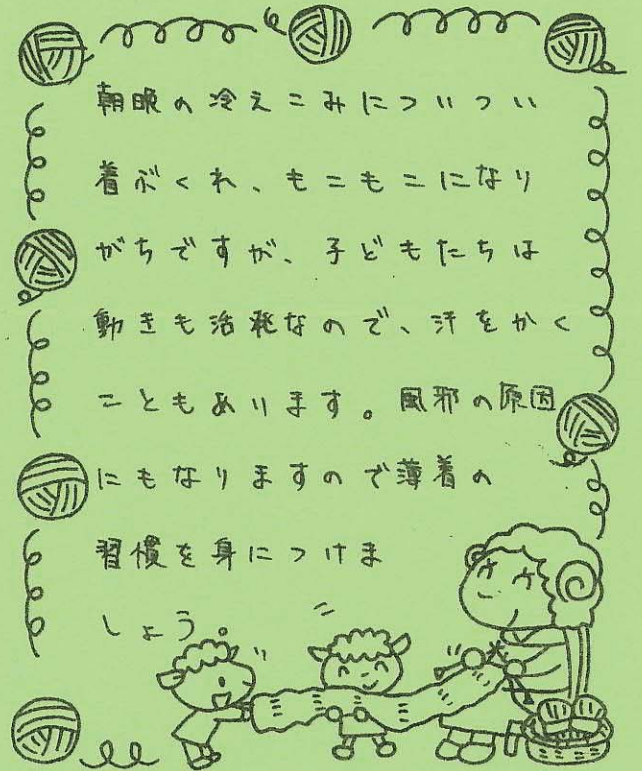 朝晩の冷えこみについつい
着ぶくれ、もこもこになり
がちですが、子どもたちは
動きも活発なので、汗をかく
こともあります。風邪の原因
にもなりますので薄着の
習慣を身につけま
しょう。